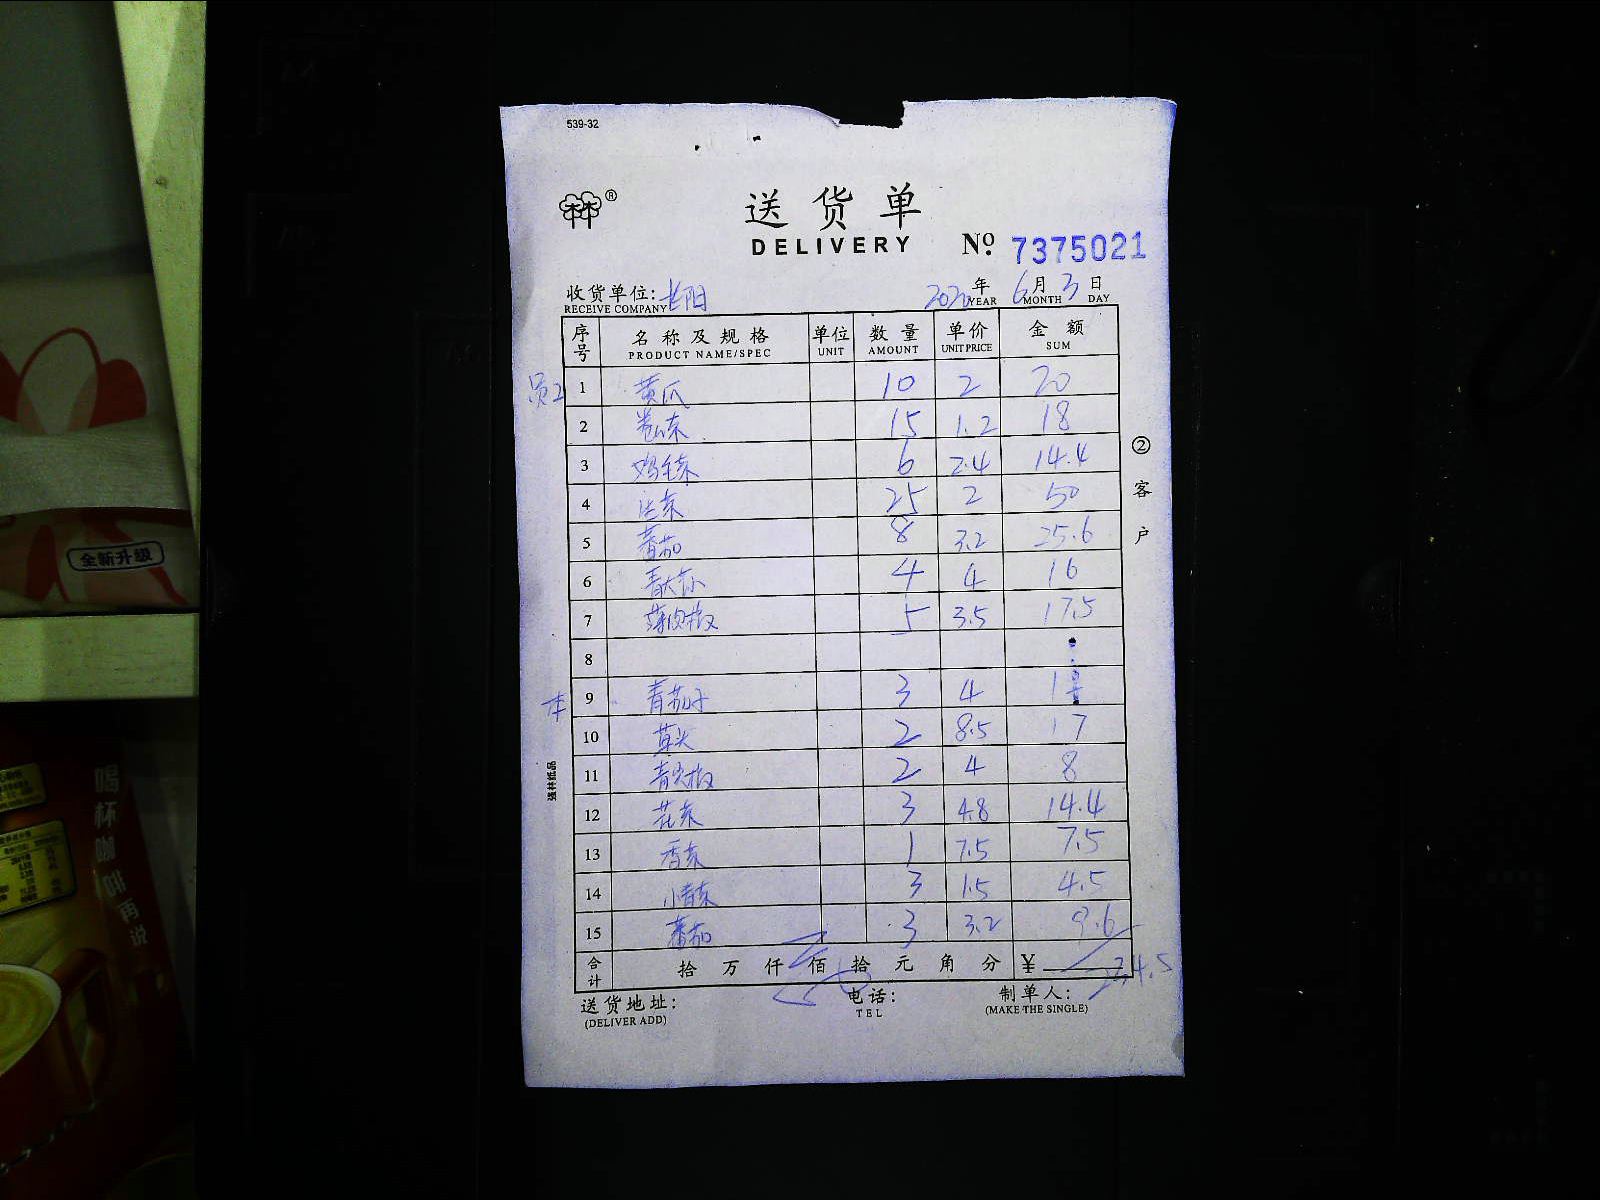 539-32
送货单
DELIVERY
No. 7375021
收货单位: 长阳 2020年 6月 3日
RECEIVE COMPANY YEAR MONTH DAY
序号 名称及规格 单位 数量 单价 金额
PRODUCT NAME/SPEC UNIT AMOUNT UNIT PRICE SUM
员工 1 黄瓜 10 2 20
2 卷心菜 15 1.2 18
3 鸡毛菜 6 2.4 14.4
4 25 2 50
5 番茄 8 3.2 25.6
6 4 4 16
7 薄肉椒 5 3.5 17.5
8
本 9 青茄子 3 4
10 2 8.5 17
11 青尖椒 2 4 8
12 花菜 3 4.8 14.4
13 香菜 1 7.5 7.5
14 小青菜 3 1.5 4.5
15 番茄 3 3.2 9.6
合计 拾万仟佰拾元角分 ¥ 234.5
送货地址: 电话: 制单人:
(DELIVER ADD) TEL (MAKE THE SINGLE)
② 客户
强林纸品
全新升級
喝杯咖啡再说